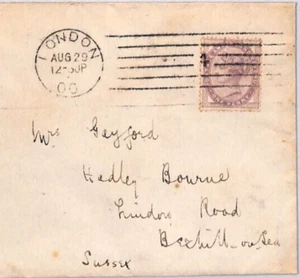 LONDON
AUG 29
12-30P
00
Mrs Gayford
Hadley Bourne
Linden Road
Bexhill-on-Sea
Sussex